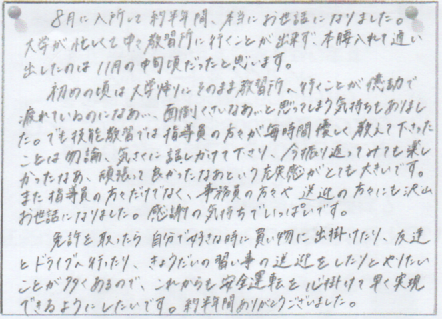 8月に入所して約半年間、本当にお世話になりました。
大学が忙しくて中々教習所に行くことが出来ず、本腰入れて通い
出したのは11月の中旬頃だったと思います。
初めの頃は大学帰りにそのまま教習所へ行くことが億劫で
疲れているのになあ…、面倒くさいなあ…と思ってしまう気持ちもありまし
た。でも技能教習では指導員の方々が毎時間優しく教えて下さった
ことは勿論、気さくに話しかけて下さり、今振り返ってみても楽し
かったなあ、頑張って良かったなあという充実感がとても大きいです。
また指導員の方々だけでなく、事務員の方々や送迎の方々にも沢山
お世話になりました。感謝の気持ちでいっぱいです。
免許を取ったら自分で好きな時に買い物に出掛けたり、友達
とドライブへ行ったり、きょうだいの習い事の送迎をしたりとやりたい
ことが多くあるので、これからも安全運転を心掛けて早く実現
できるようにしたいです。約半年間ありがとうございました。